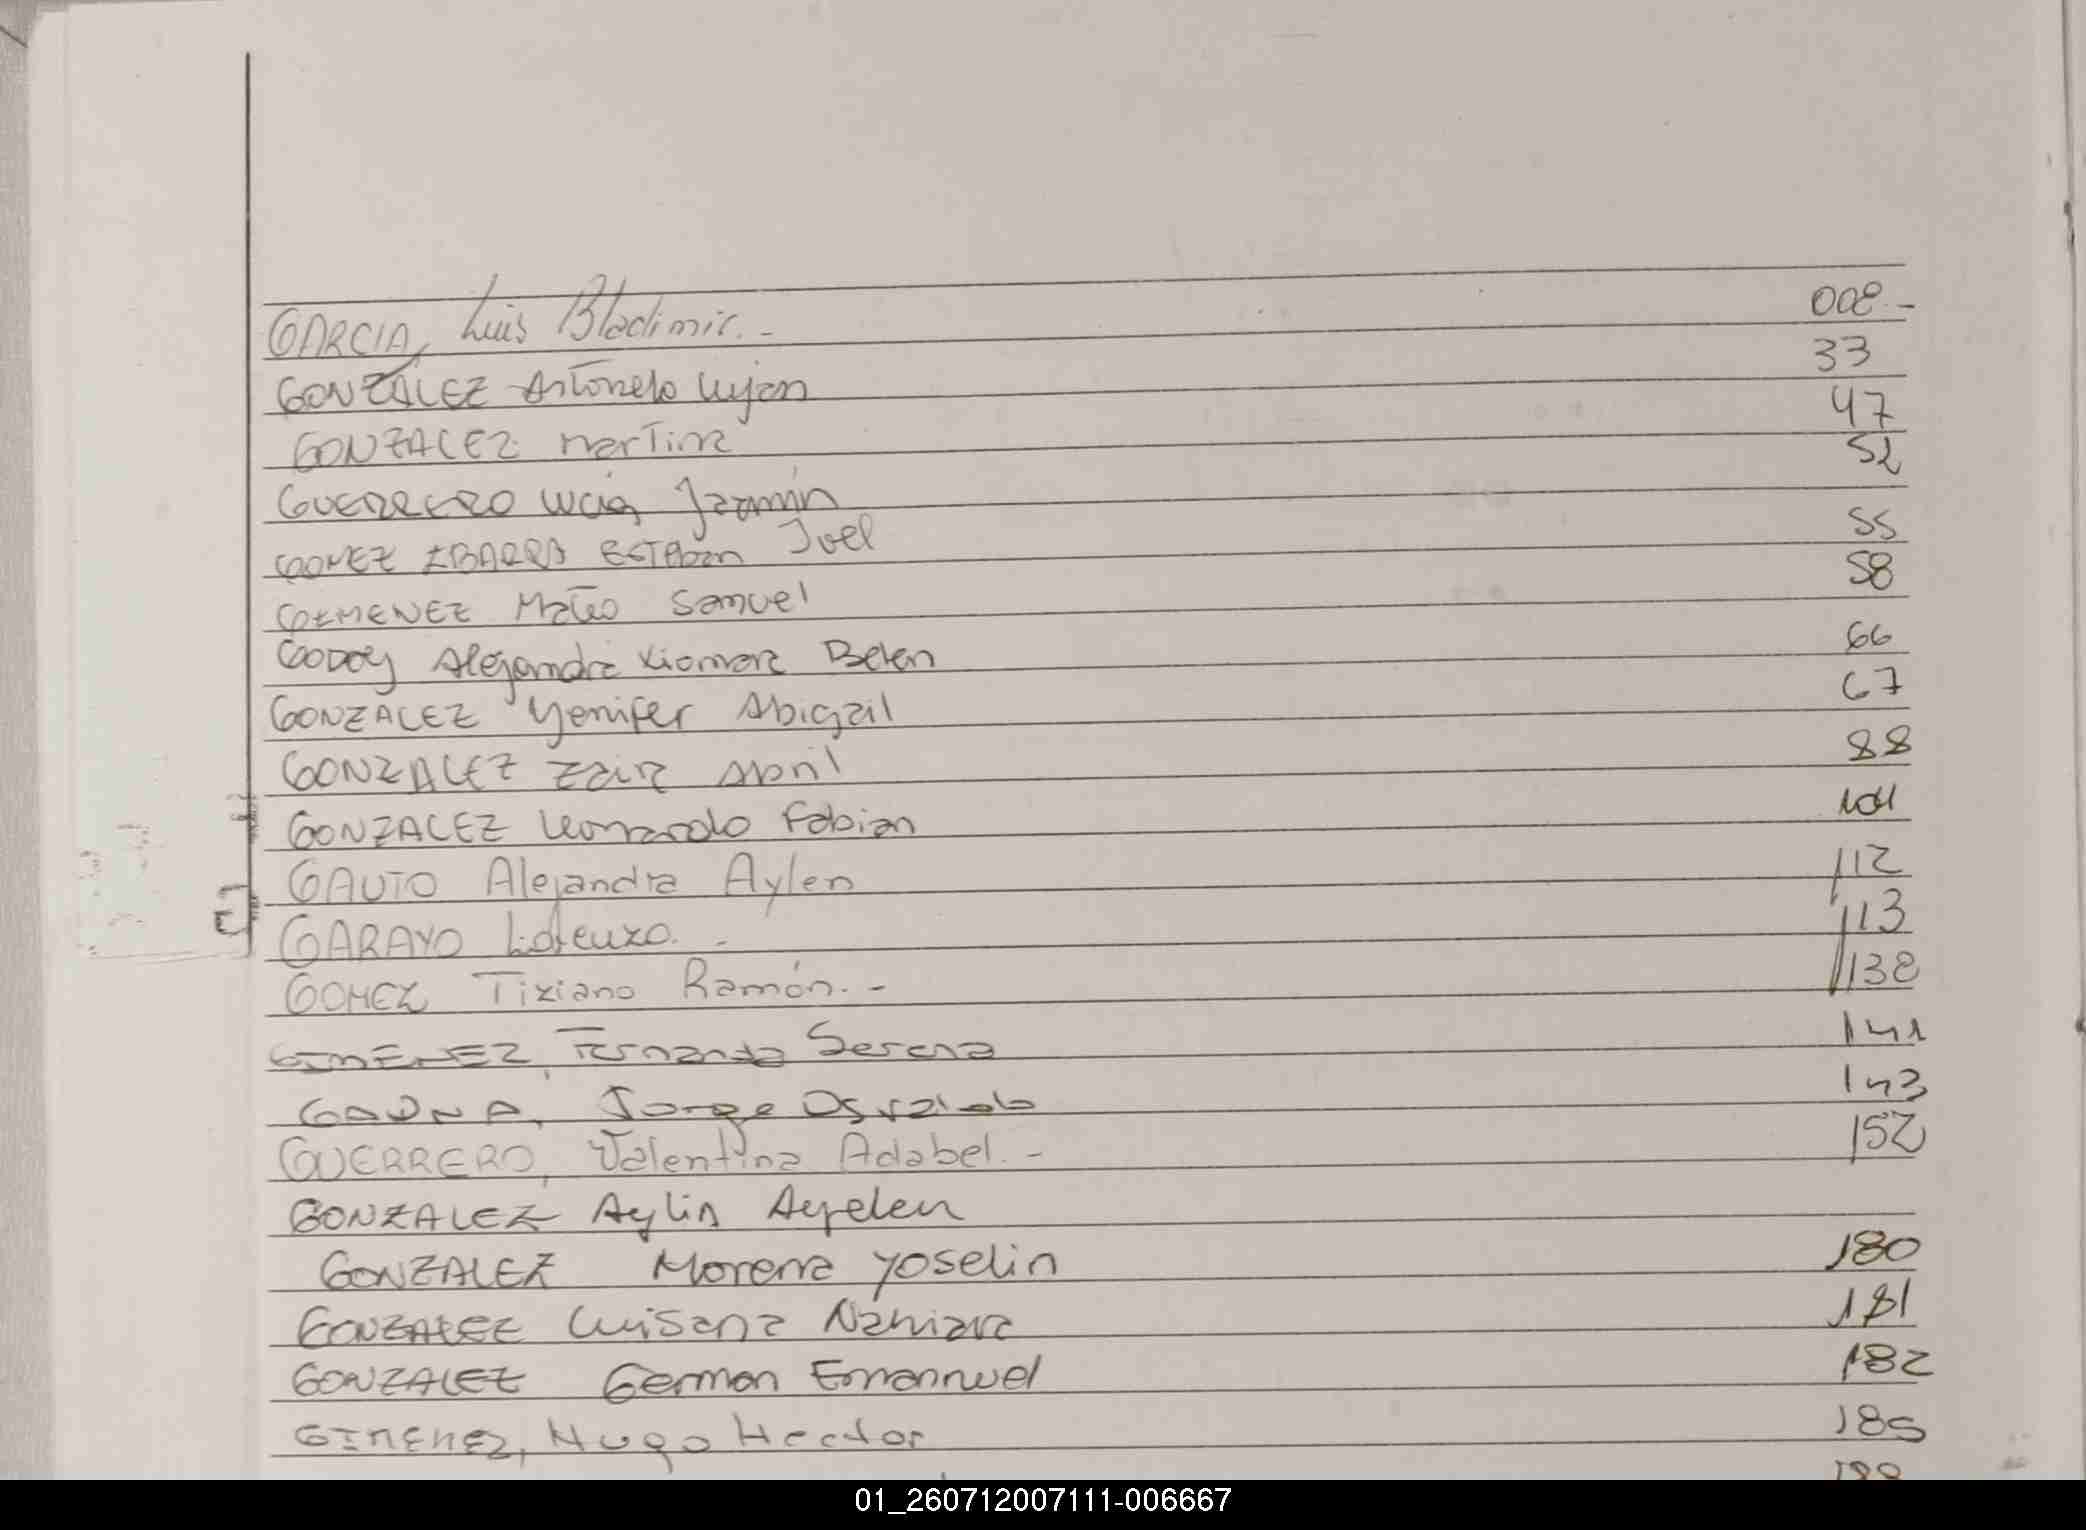 GARCIA, Luis Bladimir.- 008.-
GONZALEZ Antonela Lujan 33
GONZALEZ Martina 47
GUERRERO Lucia Jazmin 52
GOMEZ IBARRA ESTEBAN Joel 55
GIMENEZ Mateo Samuel 58
GODOY Alejandra Xiomara Belen 66
GONZALEZ Yenifer Abigail 67
GONZALEZ Zaira Abril 88
GONZALEZ Leonardo Fabian 101
GAUTO Alejandra Aylen 112
GARAYO Lorenzo.- 113
GOMEZ Tiziano Ramón.- 138
GIMENEZ, Fernanda Serena 141
GAUNA, Jorge Osvaldo 143
GUERRERO, Valentina Adabel.- 152
GONZALEZ Aylin Ayelen
GONZALEZ Morena Yoselin 180
GONZALEZ Luisana Nahiara 181
GONZALEZ German Emannuel 182
GIMENEZ, Hugo Hector 185
01_260712007111-006667